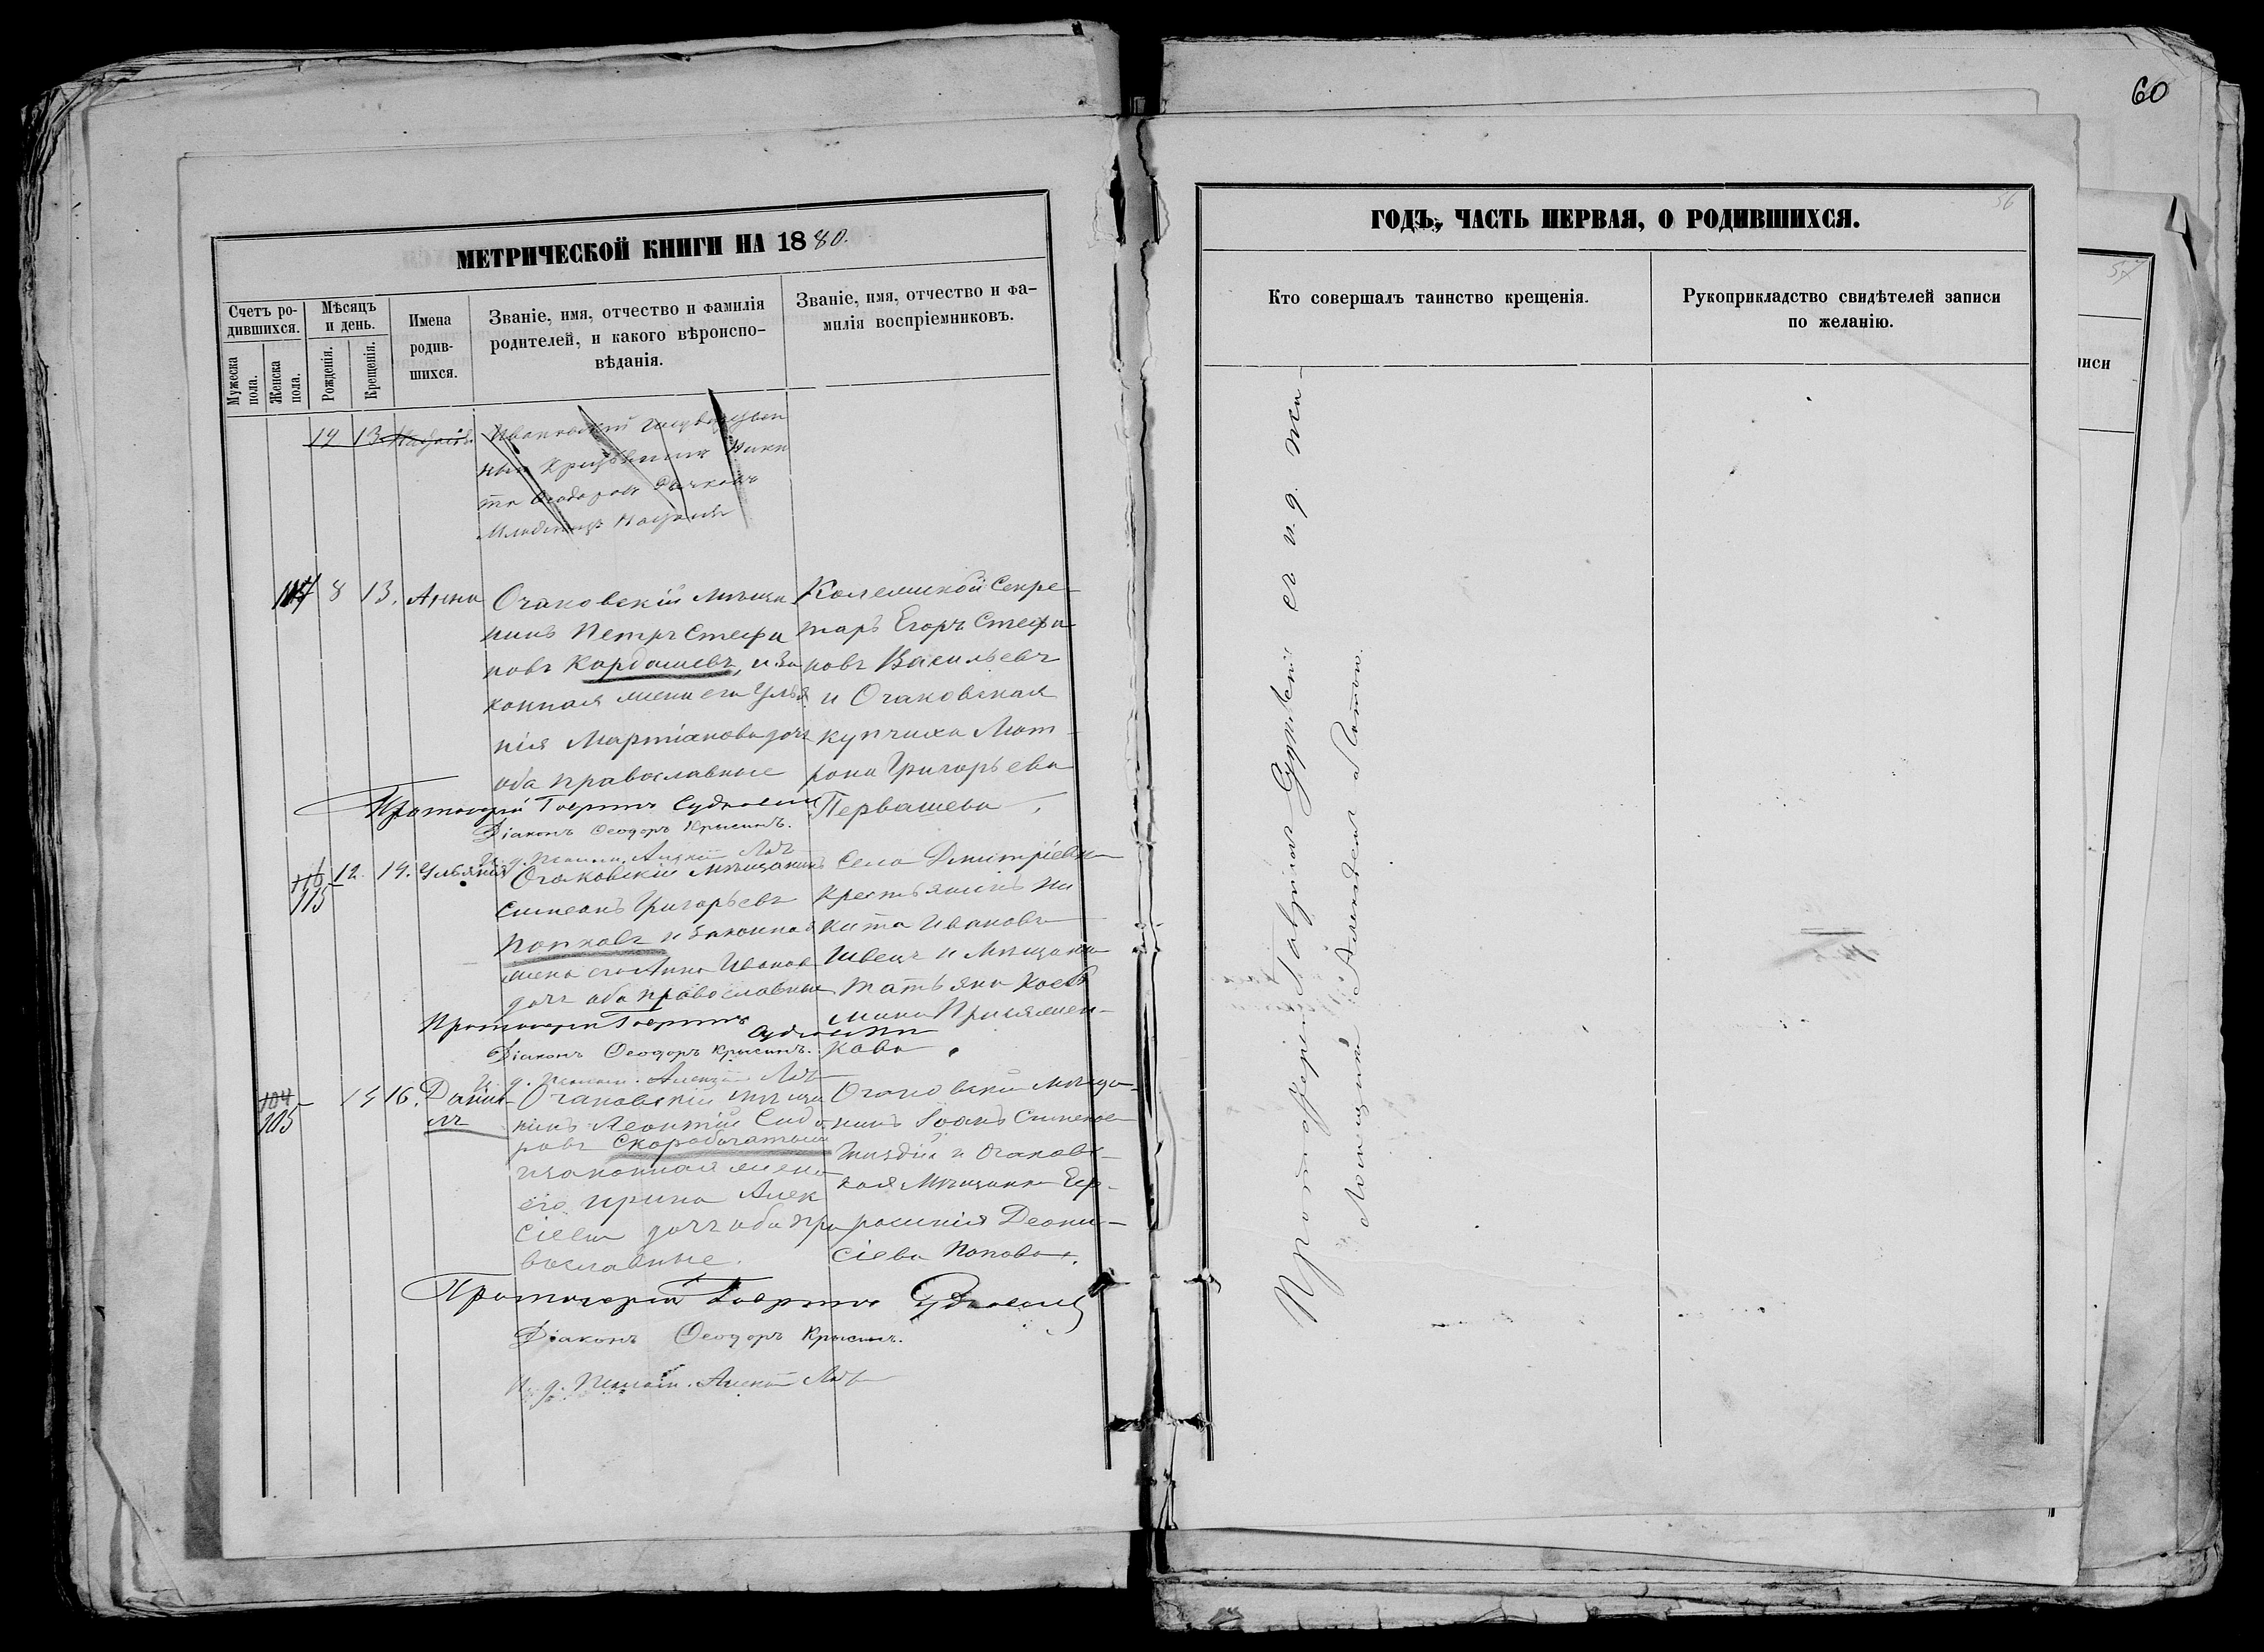 60
МЕТРИЧЕСКОЙ КНИГИ НА 1880.
Счетъ ро-
дившихся.
Мужеска
пола.
Женска
пола.
Мѣсяцъ
и день.
Рожденія.
Крещенія.
Имена
родив-
шихся.
Званіе, имя, отчество и фамилія
родителей, и какого вѣроиспо-
вѣданія.
Званіе, имя, отчество и фа-
милія воспріемниковъ.
13
114 8 13. Анна
Очаковскій мѣща
нинъ Петръ Стефа
новъ Кардашевъ, и за
конная жена его Улья
нія Мартіанова дочь
оба православные
Коллежской Секре-
таръ Егоръ Стефа
новъ Васильевъ
и Очаковская
купчиха Мат-
рона Григорьева
Первашева
Протоіерей Гавріилъ Судковскій
Діаконъ Ѳеодоръ Крысинъ.
116
115 12. 14. Ульянія
Очаковскій мѣщанинъ
Симеонъ Григорьевъ
Попковъ и законная
жена его Анна Иванов
дочь оба православные
Села Дмитріевки
крестьянинъ Ни
кита Ивановъ
Швецъ и мѣщанка
Татьяна Косъ
мина
кова
Протоіерей Гавріилъ Судковскій
Діаконъ Ѳеодоръ Крысинъ.
104
105 16. Даніи-
лъ
Очаковскій мѣща
нинъ Леонтій Сидо
ровъ Скоробогатый
и законная жена
его Ирина Алек
сіева дочь оба пра
вославные.
Очаковскій мѣща-
нинъ Іоанъ Симеонов
и Очаковс-
кая мѣщанка Еф-
росинія Деони-
сіева Попова.
Протоіерей Гавріилъ Судковскій
Діаконъ Ѳеодоръ Крысинъ.
И. д. Псалом. Алексій
ГОДЪ, ЧАСТЬ ПЕРВАЯ, О РОДИВШИХСЯ.
56
Кто совершалъ таинство крещенія.
Рукоприкладство свидѣтелей записи
по желанію.
Протоіерей Гавріилъ Судковскій съ и. д. пса-
ломщика
57
иси